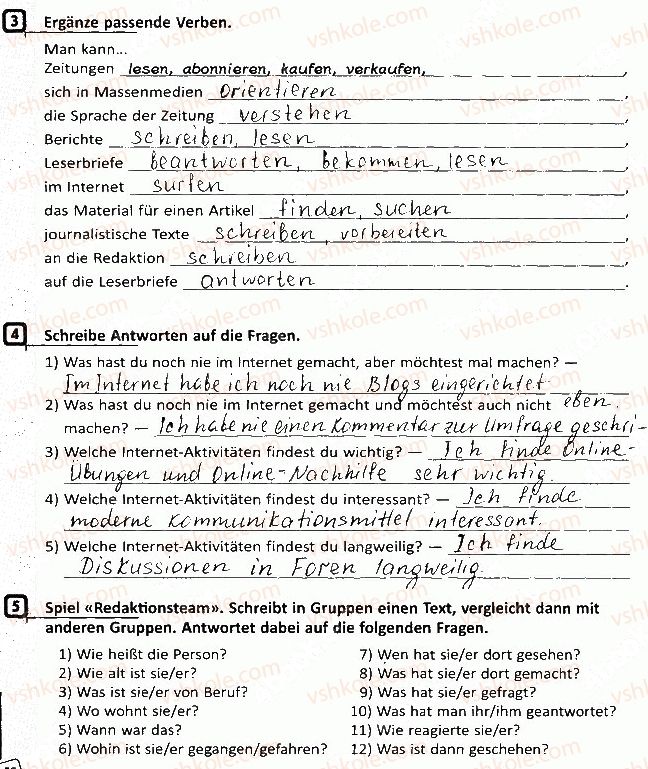 3 Ergänze passende Verben.
Man kann...
Zeitungen lesen, abonnieren, kaufen, verkaufen,
sich in Massenmedien orientieren,
die Sprache der Zeitung verstehen,
Berichte schreiben, lesen,
Leserbriefe beantworten, bekommen, lesen,
im Internet surfen,
das Material für einen Artikel finden, suchen,
journalistische Texte schreiben, vorbereiten,
an die Redaktion schreiben,
auf die Leserbriefe antworten.
4 Schreibe Antworten auf die Fragen.
1) Was hast du noch nie im Internet gemacht, aber möchtest mal machen? —
Im Internet habe ich noch nie Blogs eingerichtet.
2) Was hast du noch nie im Internet gemacht und möchtest auch nicht eben.
machen? — Ich habe nie einen Kommentar zur Umfrage geschri-
3) Welche Internet-Aktivitäten findest du wichtig? — Ich finde Online-
Übungen und Online-Nachhilfe sehr wichtig.
4) Welche Internet-Aktivitäten findest du interessant? — Ich finde
moderne Kommunikationsmittel interessant.
5) Welche Internet-Aktivitäten findest du langweilig? — Ich finde
Diskussionen in Foren langweilig.
5 Spiel «Redaktionsteam». Schreibt in Gruppen einen Text, vergleicht dann mit
anderen Gruppen. Antwortet dabei auf die folgenden Fragen.
1) Wie heißt die Person?
2) Wie alt ist sie/er?
3) Was ist sie/er von Beruf?
4) Wo wohnt sie/er?
5) Wann war das?
6) Wohin ist sie/er gegangen/gefahren?
7) Wen hat sie/er dort gesehen?
8) Was hat sie/er dort gemacht?
9) Was hat sie/er gefragt?
10) Was hat man ihr/ihm geantwortet?
11) Wie reagierte sie/er?
12) Was ist dann geschehen?
vshkole.com